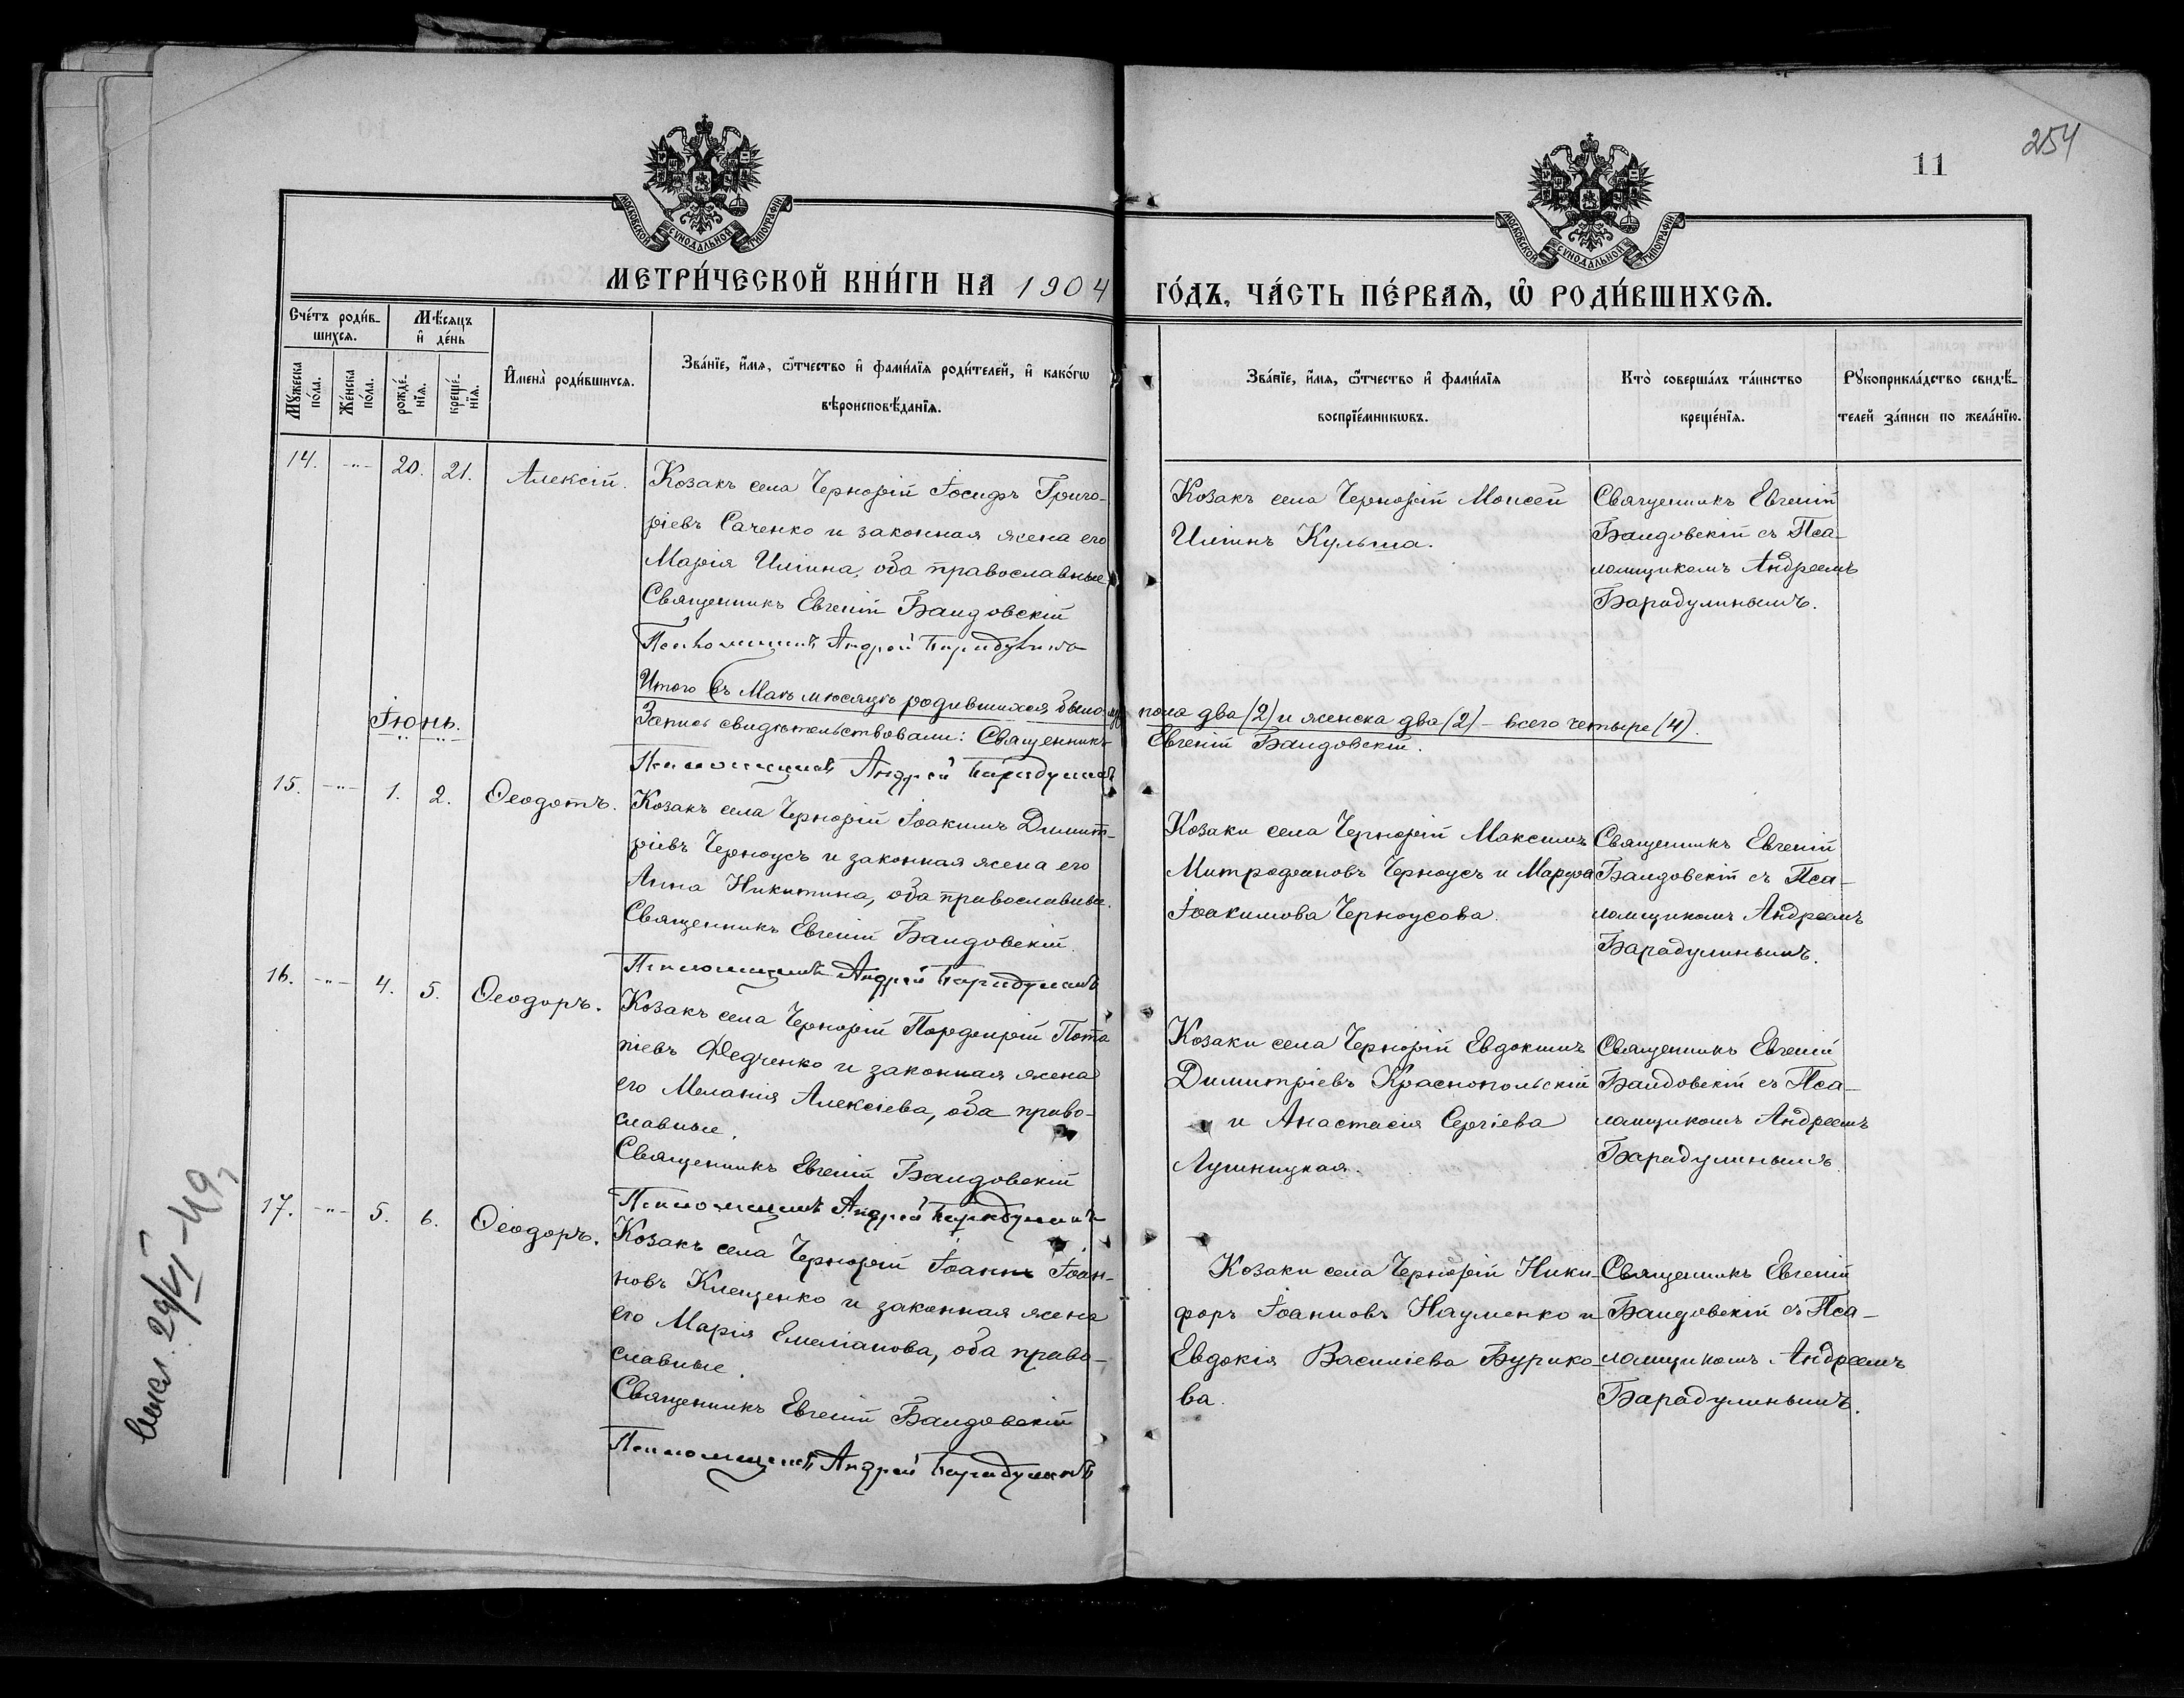 254
11
МОСКОВСКОЙ СѴНОДАЛЬНОЙ ТИПОГРАФІИ
МОСКОВСКОЙ СѴНОДАЛЬНОЙ ТИПОГРАФІИ
МЕТРИ́ЧЕСКОЙ КНИ́ГИ НА 1904 ГО́ДЪ, ЧА́СТЬ ПЕ́РВАѦ, Ѿ РОДИ́ВШИХСѦ.
Сче́тъ роди́в-
шихсѧ.
Мѣ́сѧцъ
и҆ де́нь
Мꙋ́жеска
по́ла.
Же́нска
по́ла.
рожде́-
нїѧ.
креще́-
нїѧ.
И҆мена̀ роди́вшихсѧ.
Зва́нїе, и҆́мѧ, ѻ҆́тчество и҆ фами́лїѧ роди́телей, и҆ како́гѡ
вѣроисповѣ́данїѧ.
Зва́нїе, и҆́мѧ, ѻ҆́тчество и҆ фами́лїѧ
воспрїе́мникѡвъ.
Кто̀ соверша́лъ та́инство
креще́нїѧ.
Рꙋкоприкла́дство свидѣ́-
телей за́писи по жела́нїю.
14. -"- 20. 21. Алексій.
Козакъ села Чернорій Іосифъ Григо-
ріевъ Саченко и законная жена его
Марія Иліина, оба православные
Священникъ Евгеній Баидовскій
Псаломщикъ Андрей Барадулинъ
Козакъ села Чернорій Моисей
Иліинъ Кульша.
Священникъ Евгеній
Баидовскій съ Пса-
ломщикомъ Андреемъ
Барадулинымъ.
Итого въ Маѣ мѣсяцѣ родившихся было муж. пола два (2) и женска два (2) – всего четыре (4).
Запись свидѣтельствовали: Священникъ Евгеній Баидовскій.
Псаломщикъ Андрей Барадулинъ
Іюнь.
15. -"- 1. 2. Ѳеодотъ.
Козакъ села Чернорій Іоакимъ Димит-
ріевъ Черноусъ и законная жена его
Анна Никитина, оба православные.
Священникъ Евгеній Баидовскій.
Псаломщикъ Андрей Барадулинъ
Козаки села Чернорій Максимъ
Митрофановъ Черноусъ и Марфа
Іоакимова Черноусова.
Священникъ Евгеній
Баидовскій съ Пса-
ломщикомъ Андреемъ
Барадулинымъ.
16. -"- 4. 5. Ѳеодоръ.
Козакъ села Чернорій Порфирій Пота
піевъ Федченко и законная жена
его Меланія Алексіева, оба право-
славные.
Священникъ Евгеній Баидовскій
Псаломщикъ Андрей Барадулинъ
Козаки села Чернорій Евдокимъ
Димитріевъ Краснопольскій
и Анастасія Сергіева
Лушницкая.
Священникъ Евгеній
Баидовскій съ Пса-
ломщикомъ Андреемъ
Барадулинымъ.
17. -"- 5. 6. Ѳеодоръ.
Козакъ села Чернорій Іоаннъ Іоан-
новъ Клещенко и законная жена
его Марія Емеліанова, оба право-
славные.
Священникъ Евгеній Баидовскій
Псаломщикъ Андрей Барадулинъ
Козаки села Чернорій Ники-
форъ Іоанновъ Науменко и
Евдокія Василіева Бурико-
ва.
Священникъ Евгеній
Баидовскій съ Пса-
ломщикомъ Андреемъ
Барадулинымъ.
29/VI – 49